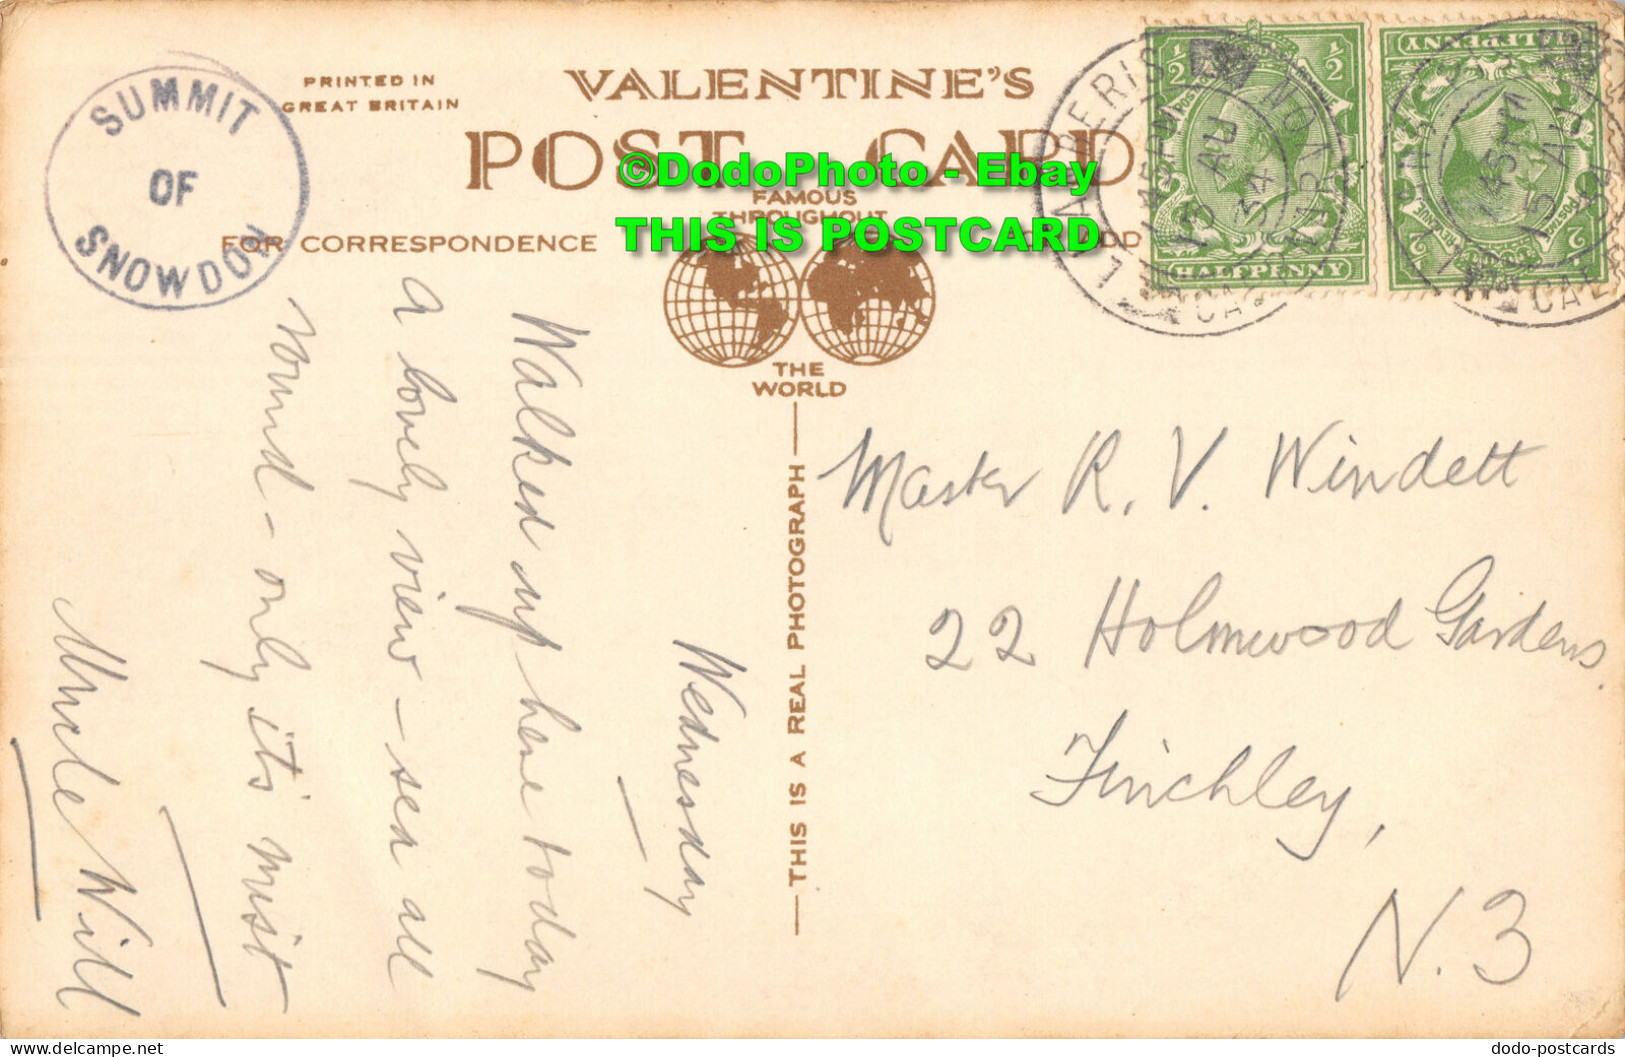 SUMMIT
OF
SNOWDON
PRINTED IN
GREAT BRITAIN
VALENTINE'S
POST CARD
©DodoPhoto - Ebay
THIS IS POSTCARD
FAMOUS
THROUGHOUT
THE
WORLD
FOR CORRESPONDENCE
THIS IS A REAL PHOTOGRAPH
Wednesday
Walked up here today
a lovely view - sea all
round - only its mist
Uncle Will
LLANBERIS
CAERNARVON
7 45 PM
15 AU
34
½ ½
HALFPENNY
HALFPENNY
7 45 PM
15 AU
Master R. V. Windett
22 Holmwood Gardens
Finchley,
N. 3
dodo-postcards